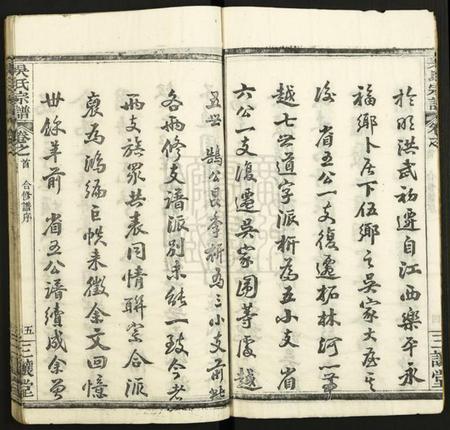 於明洪武初遷自江西樂平永
福鄉卜居下伍鄉之吳家大屋其
後 省五公一支復遷柘林河
越七世道字派析為五小支 省
六公一支復遷吳家園等處越
五世 鵠公昆季析為三小支前此
各兩修支譜派別未能一致今者
兩支族眾共表同情聯宗合派
裒為鴻編巨帙未徵余文回憶
卅餘年前 省五公譜續成余曾
吳氏宗譜
卷之首 合修譜序
五 三讓堂
三讓堂